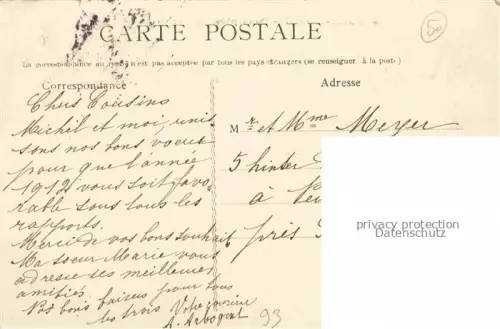 CARTE POSTALE
5
La correspondance au recto n'est pas acceptée par tous les pays étrangers (se renseigner à la poste)
Correspondance
Adresse
Chers Cousins
Michel et moi, unis
sons nos bons voeux
pour que l'année
1912 vous soit favo
rable sous tous les
rapports.
Merci de vos bons souhaits
Ma soeur Marie vous
adresse ses meilleures
amitiés.
Nos bons baisers pour tous
les trois Votre cousine
A. Arbogast
Mr. et Mme Meyer
5 hinter
à
près
privacy protection
Datenschutz
93